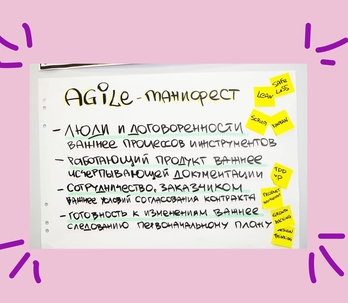 AGiLe - манифест
SAFe
LeSS
LEAN
SCRUM
KANBAN
– ЛЮДИ И ДОГОВОРЕННОСТИ
ВАЖНЕЕ ПРОЦЕССОВ И ИНСТРУМЕНТОВ
– РАБОТАЮЩИЙ ПРОДУКТ ВАЖНЕЕ
ИСЧЕРПЫВАЮЩЕЙ ДОКУМЕНТАЦИИ
TDD
XP
– СОТРУДНИЧЕСТВО С ЗАКАЗЧИКОМ
ВАЖНЕЕ УСЛОВИЙ СОГЛАСОВАНИЯ КОНТРАКТА
– ГОТОВНОСТЬ К ИЗМЕНЕНИЯМ ВАЖНЕЕ
СЛЕДОВАНИЮ ПЕРВОНАЧАЛЬНОМУ ПЛАНУ
DESIGN
THINKING